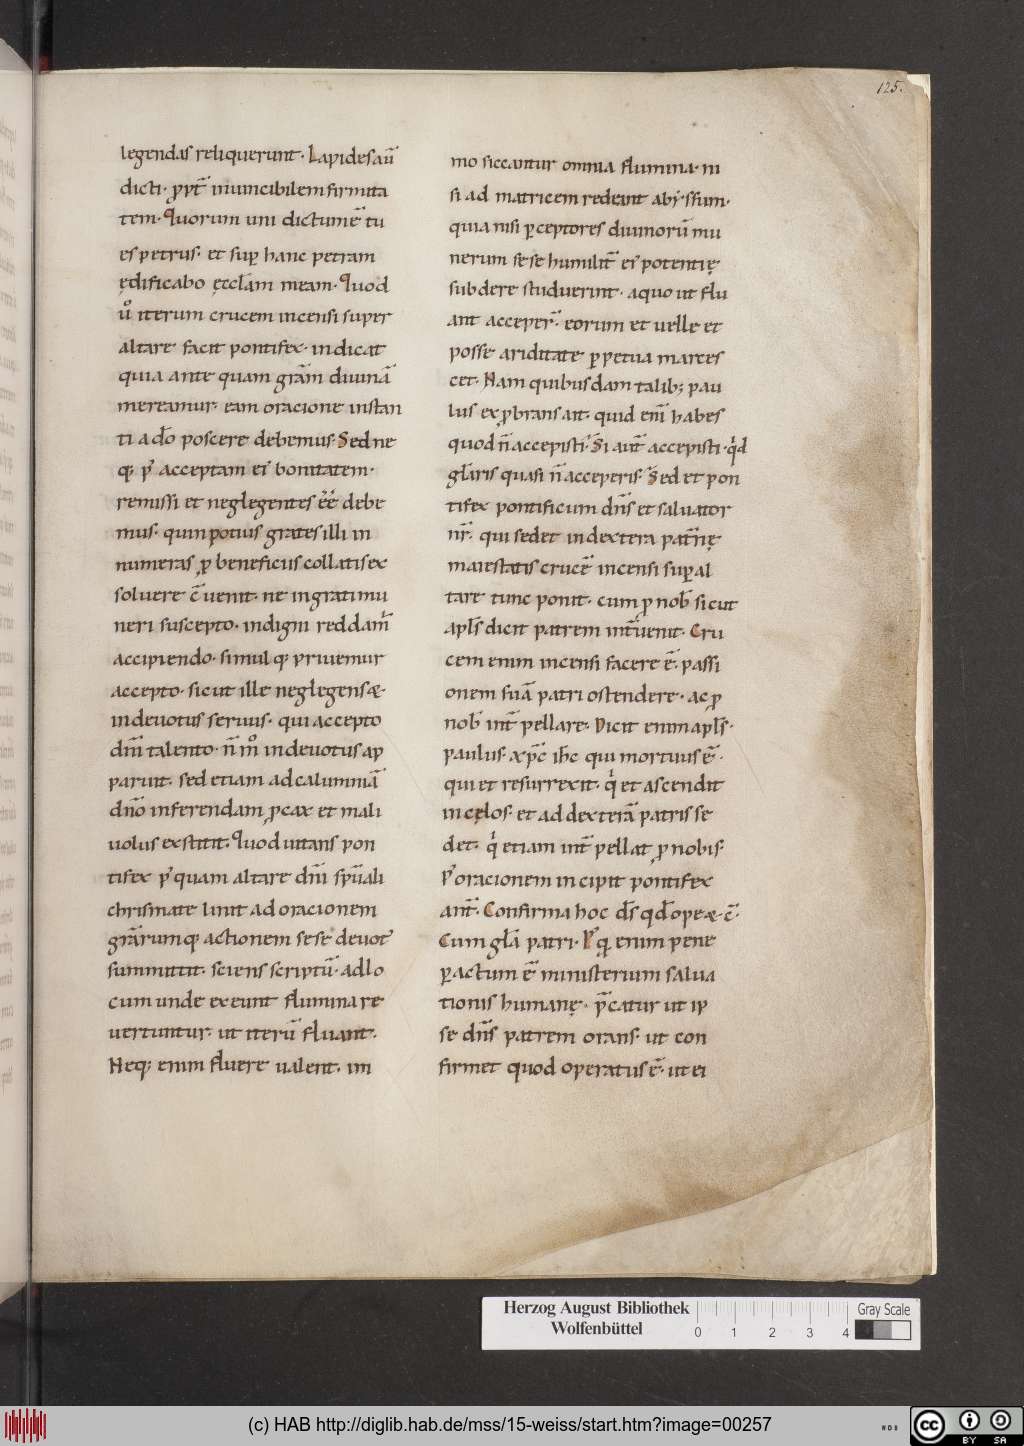 125.
legendas reliquerunt· Lapides au̅
dicti· ꝓpt̅ inuincibilem firmita
tem· Quorum uni dictum e̅ tu
es petrus· et sup̱ hanc petram
ędificabo ęccl̅am meam· Quod
uͦ iterum crucem incensi super
altare facit pontifex· indicat
quia ante quam gra̅m diuina̅
mereamur· eam oracione instan
ti a do̅ poscere debemus· Sed ne
q; p᷒ acceptam ei᷒ bonitatem·
remissi et neglegentes e̅e̅ debe
mus· quin potius grates illi in
numeras ꝓ beneficiis collatis ex
soluere c̅uenit· ne ingrati mu
neri suscepto· indigni reddam᷒
accipiendo· simul q; priuemur
accepto· sicut ille neglegens &
indeuotus seruus· qui accepto
dn̅i talento· n̅ mͦ indeuotus ap
paruit· sed etiam ad calumnia̅
dn̅o inferendam ꝓcax et mali
uolus exstitit· Quod uitans pon
tifex p᷒quam altare dn̅i sp̅uali
chrismate linit ad oracionem
gra̅rumq; actionem sese deuot᷒
summittit· sciens scriptu̅· ad lo
cum unde exeunt flumina re
uertuntur· ut iteru̅ fluant·
Neq; enim fluere ualent· im
mo siccantur omnia flumina· ni
si ad matricem redeant abyssum·
quia nisi ꝑceptores diuinoru̅ mu
nerum sese humilit̅ ei᷒ potentię
subdere studuerint· a quo ut flu
ant acceper̅· eorum et uelle et
posse ariditate ꝑpetua marces
cet· Nam quibusdam talib; pau
lus exꝓbrans ait· quid eni̅ habes
quod n̅ accepisti? Si aut̅ accepisti· qͥd
gl̅aris quasi n̅ acceperis? Sed et pon
tifex pontificum dn̅s et saluator
nr̅· qui sedet in dextera pat̅nę
maiestatis cruce̅ incensi suꝑ al
tare tunc ponit· cum ꝓ nob̅ sicut
apl̅s dicit patrem int̅uenit· Cru
cem enim incensi facere e̅· passi
onem sua̅ patri ostendere· ac ꝓ
nob̅ int̅pellare· Dicit enim apl̅s·
paulus· xp̅c ih̅c qui mortuus e̅·
qui et resurrexit· qͥ et ascendit
in cęlos· et ad dextera̅ patris se
det· qͥ etiam int̅pellat ꝓ nobis·
P᷒ oracionem incipit pontifex
ant̅· Confirma hoc ds̅ qd̅ ope & c̅·
Cum gl̅a patri· P᷒ q; enim pene
ꝑactum e̅ ministerium salua
tionis humanę· p̅catur ut ip
se dn̅s patrem orans· ut con
firmet quod operatus e̅· ut ei
Herzog August Bibliothek
Wolfenbüttel
0 1 2 3 4
Gray Scale
(c) HAB http://diglib.hab.de/mss/15-weiss/start.htm?image=00257
cc BY SA